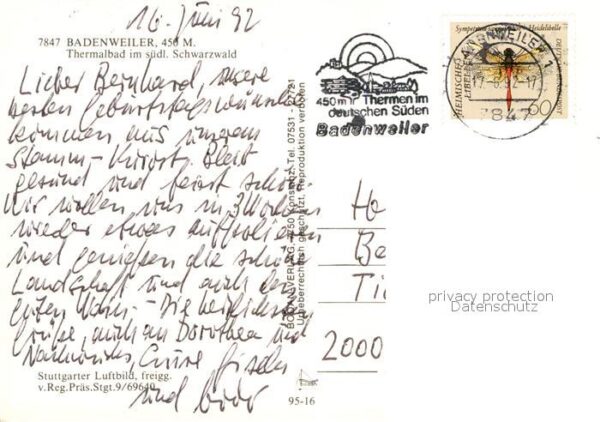 16. Juni 92
7847 BADENWEILER, 450 M.
Thermalbad im südl. Schwarzwald
Lieber Bernhard, unsere
besten Geburtstagswünsche
kommen aus unserem
Stamm-Kurort. Bleib
gesund und feiert schön.
Wir wollen uns in 3 Wochen
wieder etwas auffrischen
und genießen die schöne
Landschaft und auch den
guten Wein. - Die herzlichsten
Grüße, auch an Dorothea und
Gisela
und
Stuttgarter Luftbild, freigg.
v.Reg.Präs.Stgt.9/69640
95-16
BODANVERLAG, 7750 Konstanz, Tel. 07531-22721
Urheberrechtlich geschützt. Reproduktion verboten
450 m Thermen im
deutschen Süden
Badenweiler
BADENWEILER 1
17.-6.92-17
7847
Heidelibelle
DEUTSCHE BUNDESPOST
HEIMISCHE
LIBELLEN
60
Ha
Be
Ti
2000
privacy protection
Datenschutz